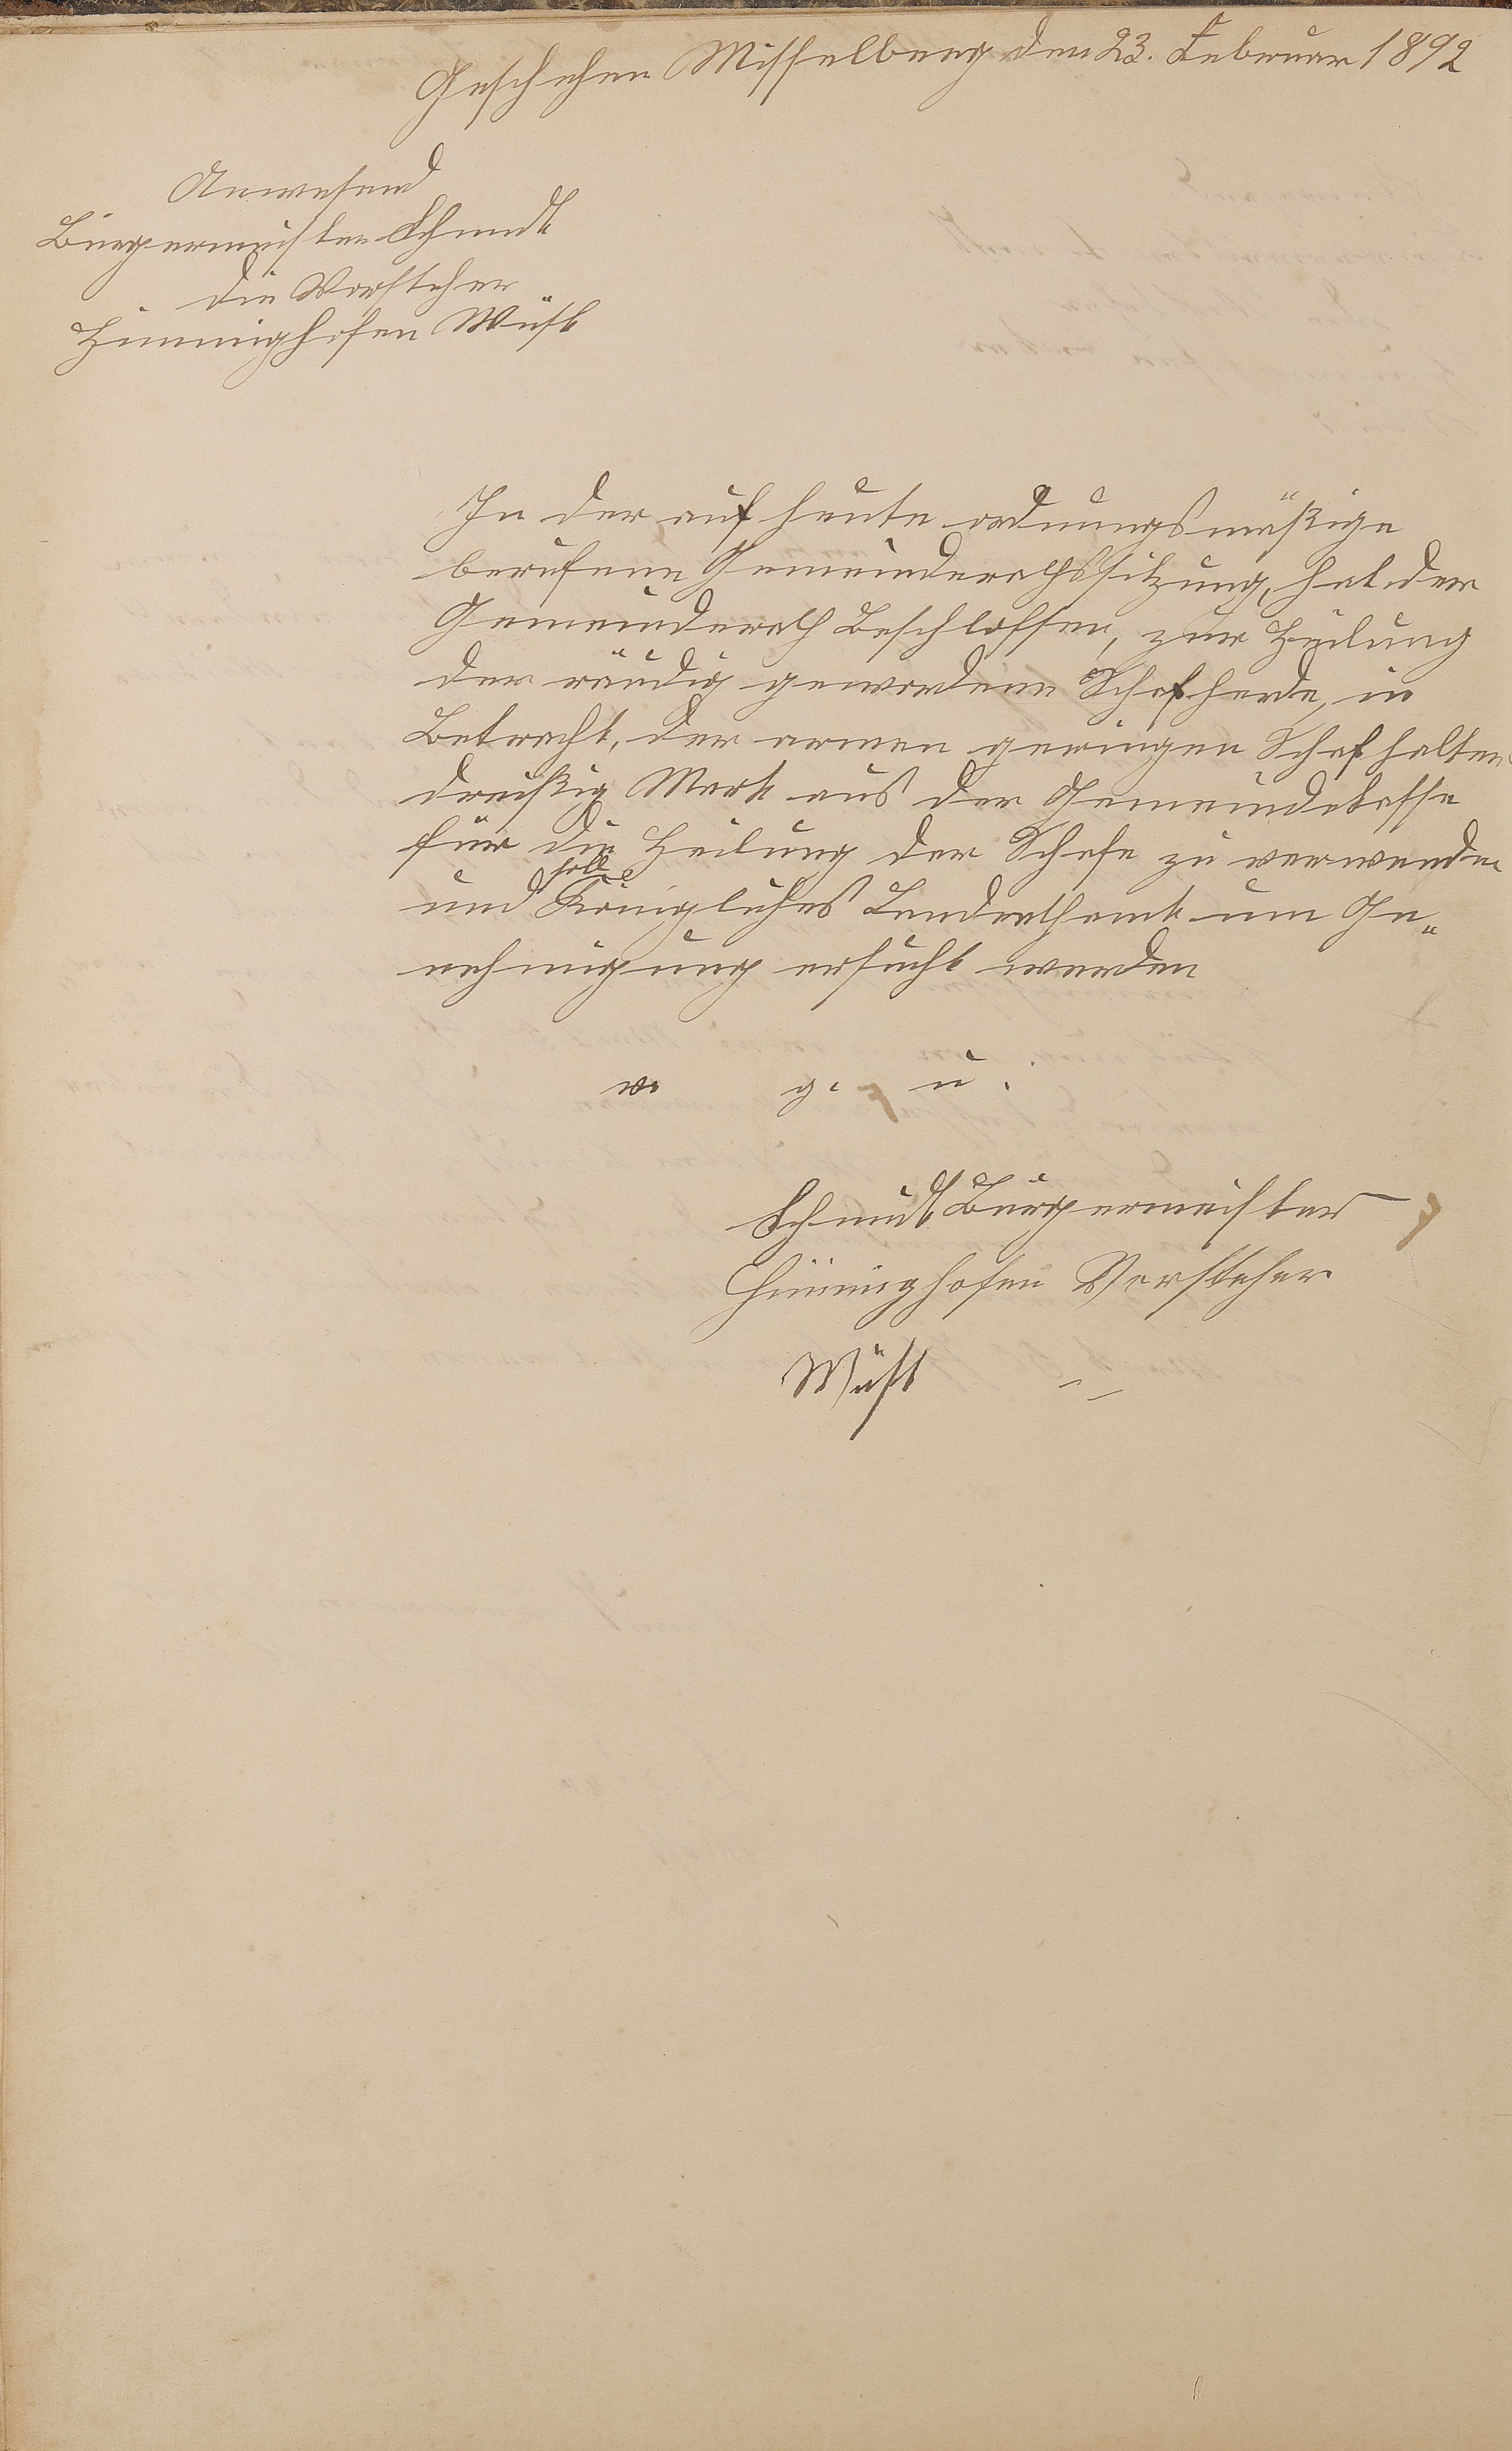 Geschehen Misselberg den 23. Februar 1892
Anwesend
Bürgermeister Schmidt
die Vorsteher
Hinninghofen Wüst
In der auf heute ordnungsmäßige
berufene Gemeinderathssitzung, hat der
Gemeinderath Beschlossen, zur Heilung
der räudig gewordene Schafherde, in
Betracht, der armen geringen Schafhalter
dreißig Mark aus der Gemeindekasse
für die Heilung der Schafe zu verwenden
und soll Königliches Landrathsamt um Ge„
nehmigung ersucht werden
v. g. u.
Schmidt Bürgermeister
Hinninghofen Vorsteher
Wüst  –  –